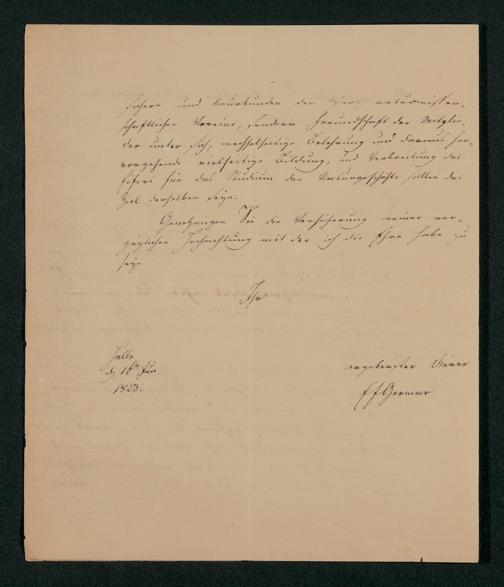 und beurkunden den naturwissen-
schaftlicher Vereine, sondern Freundschaft der Mitglie-
der unter sich, wechselseitige Belehrung und daraus her-
vorgehende vielseitige Bildung, und Verbreitung des
Eifers für das Studium der Naturgeschichte sollten das
Ziel derselben seyn.
Genehmigen Sie die Versicherung meiner vor-
züglichen Hochachtung mit der ich die Ehre habe zu
seyn
Ihr
Halle
ergebenster Diener
EfGermar